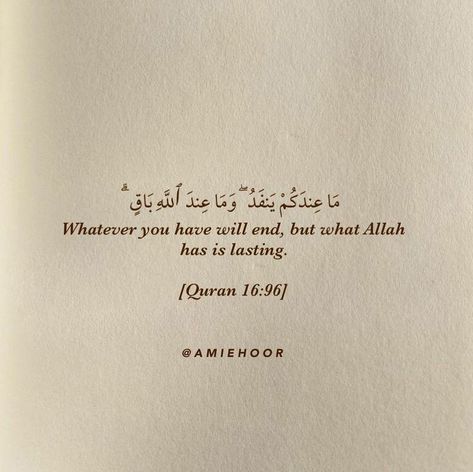 مَا عِندَكُمْ يَنفَدُ ۖ وَمَا عِندَ ٱللَّهِ بَاقٍ ۗ
Whatever you have will end, but what Allah
has is lasting.
[Quran 16:96]
@AMIEHOOR